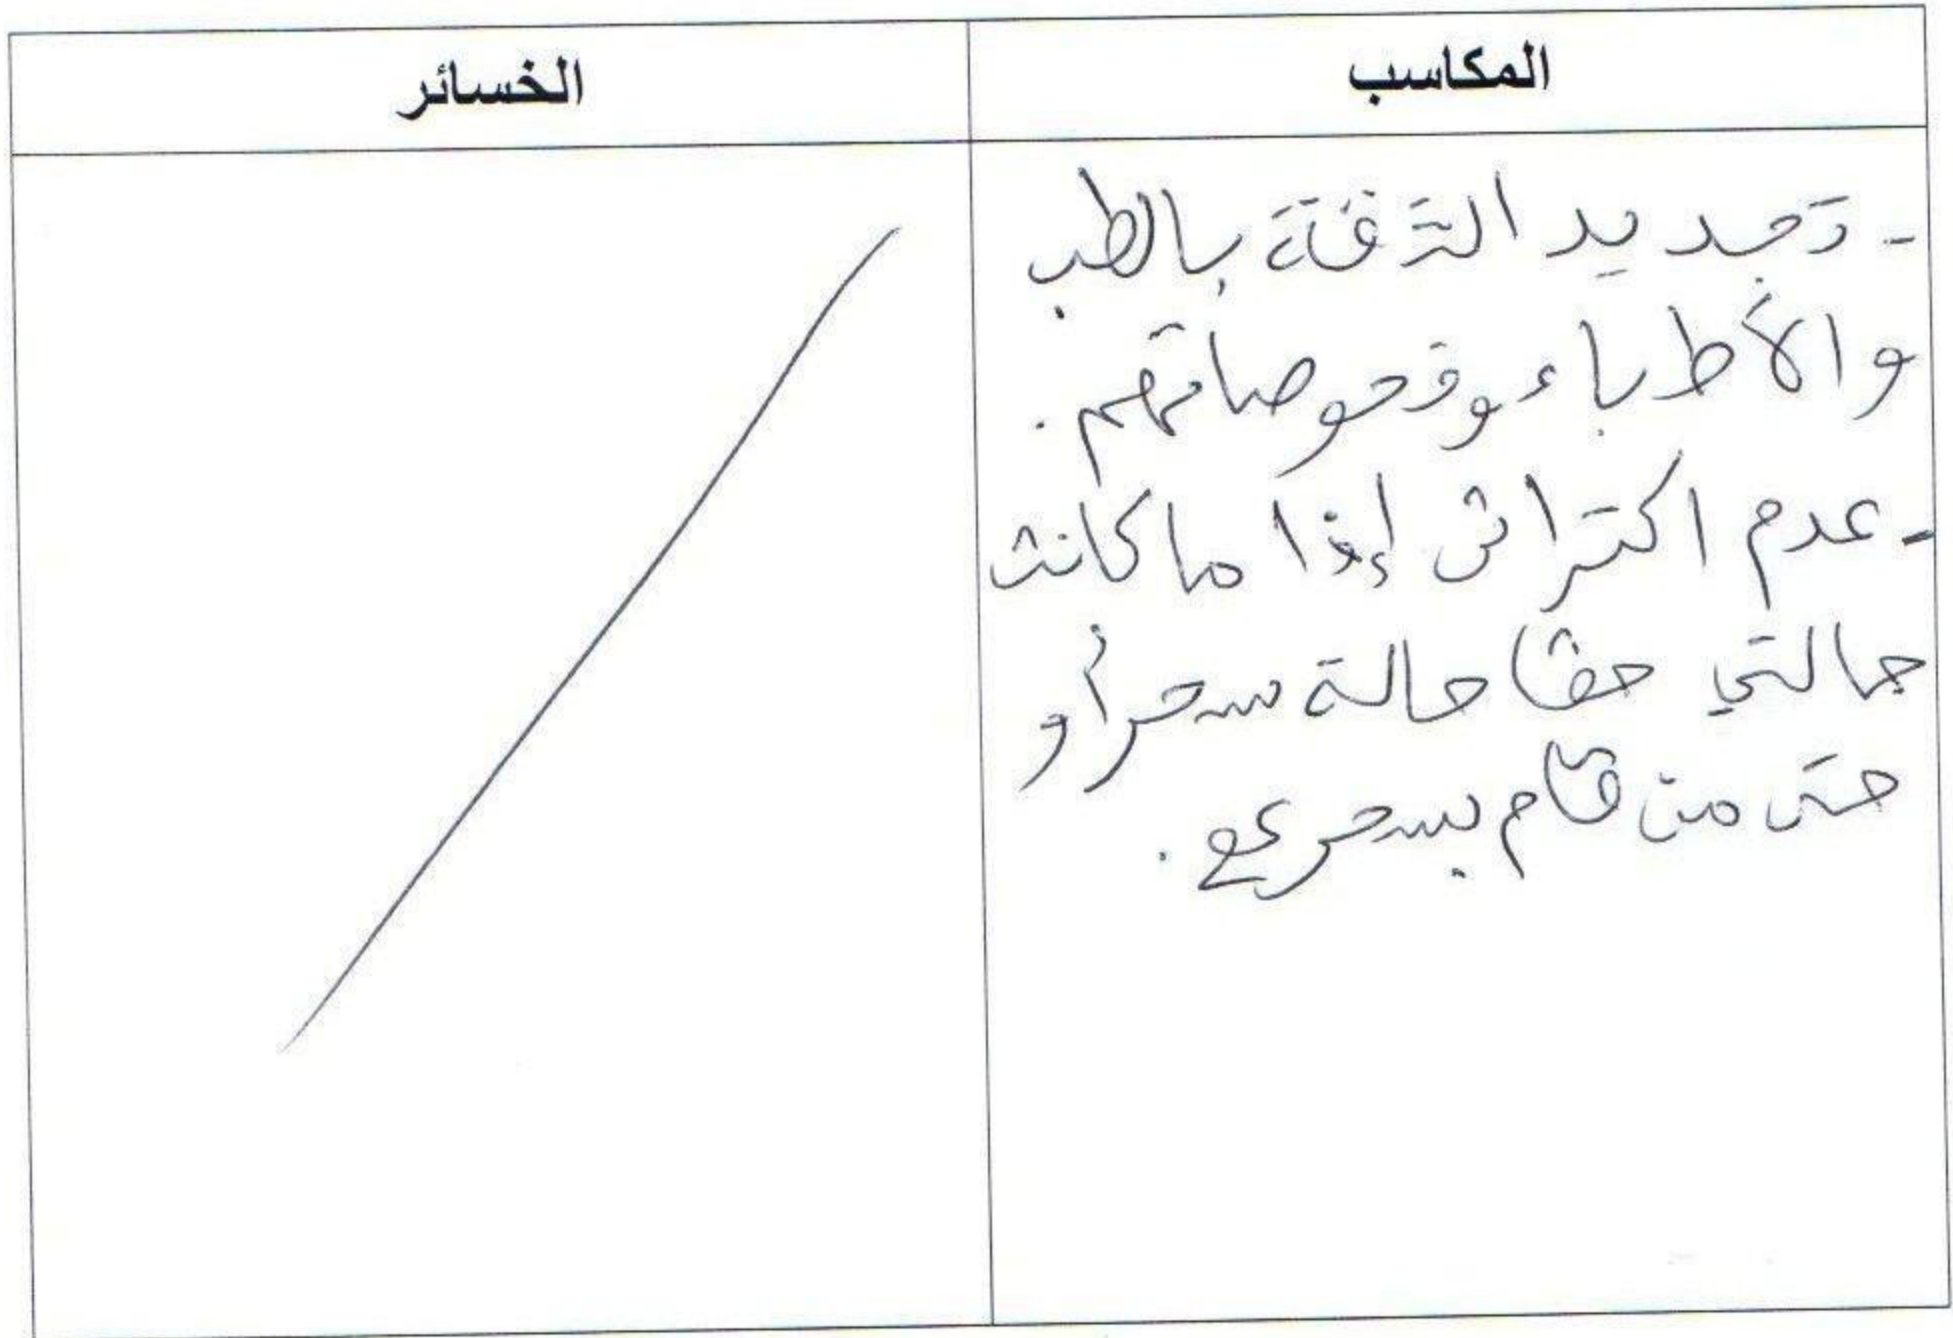 المكاسب
الخسائر
- تجديد الثقة بالطب
والأطباء وفحوصاتهم.
- عدم اكتراثي إذا ما كانت
حالتي حقا حالة سحر أو
حتى من قام بسحري.